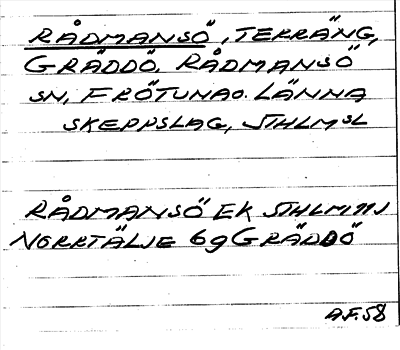 RÅDMANSÖ, TERRÄNG,
GRÄDDÖ. RÅDMANSÖ
SN, FRÖTUNA O. LÄNNA
SKEPPSLAG, STHLMSL
RÅDMANSÖ EK STHLM 11J
NORRTÄLJE 6g GRÄDDÖ
A.F. 58